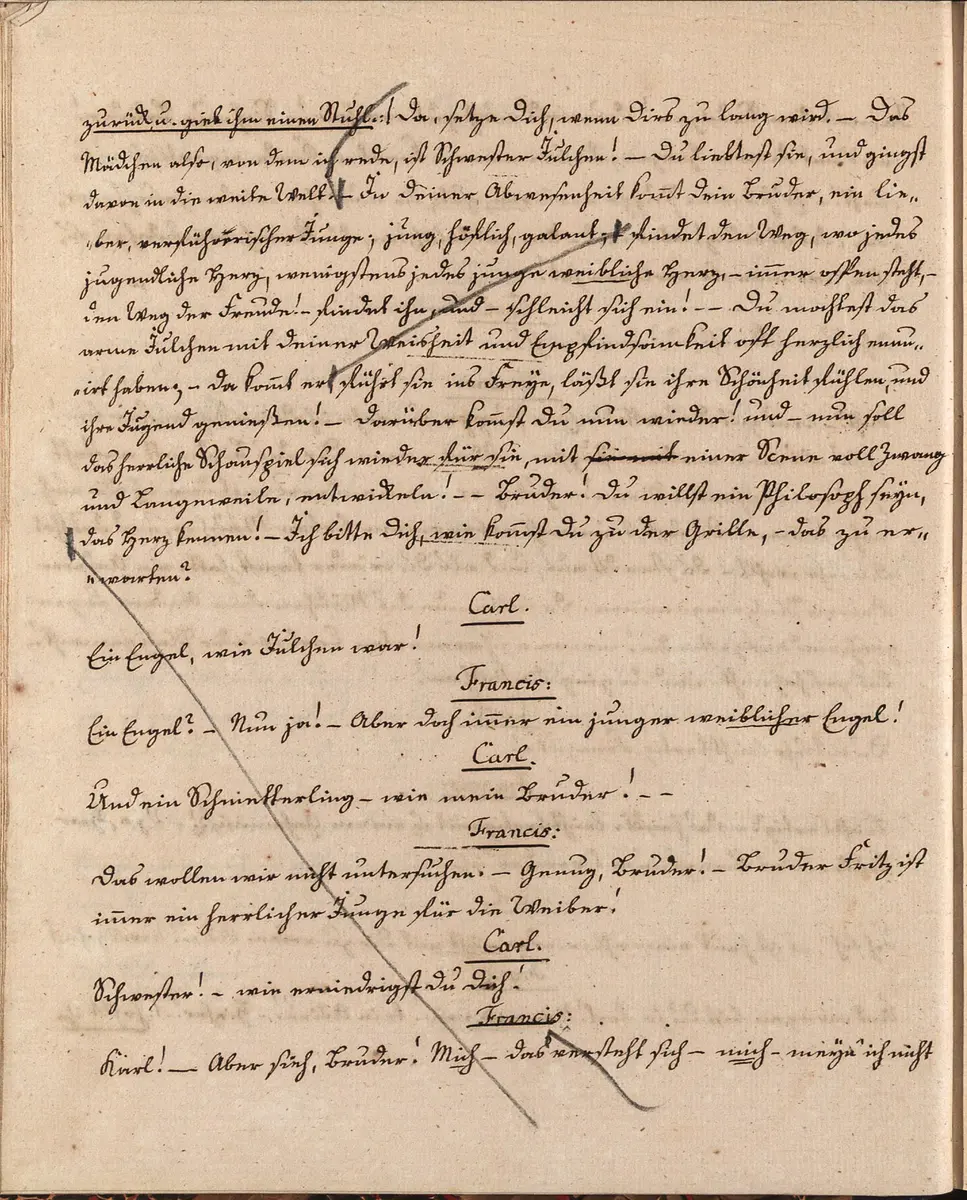 zurück, u. giebt ihm einen Stuhl.:/ Da, setze Dich, wenn Dirs zu lang wird. – Das
Mädchen also, von dem ich rede, ist Schwester Julchen! – Du liebtest sie, und gingst
davon in die weite Welt. – In deiner Abwesenheit kommt dein Bruder, ein lie=
=ber, verführerischer Junge; jung, höflich, galant; findet den Weg, wo jedes
jugendliche Herz, wenigstens jedes junge weibliche Herz, – immer offen steht, –
den Weg der Freude! – findet ihn, und – schleicht sich ein! – – Du mochtest das
arme Julchen mit deiner Weisheit und Empfindsamkeit oft herzlich ennu=
=irt haben; – da kommt er, führt sie ins Freye, läßt sie ihre Schönheit fühlen, und
ihre Jugend genießen! – Darüber kommst Du nun wieder! und – nun soll
das herrliche Schauspiel sich wieder für sie, mit sie mit einer Scene voll Zwang
und Langeweile, entwickeln! – – Bruder! Du willst ein Philosoph seyn,
das Herz kennen! – Ich bitte Dich, wie kommst Du zu der Grille, – das zu er=
=warten?
Carl.
Ein Engel, wie Julchen war!
Francis:
Ein Engel? – Nun ja! – Aber doch immer ein junger weiblicher Engel!
Carl.
Und ein Schmetterling – wie mein Bruder! – –
Francis:
Das wollen wir nicht untersuchen. – Genug, Bruder! – Bruder Fritz ist
immer ein herrlicher Junge für die Weiber!
Carl.
Schwester! – wie erniedrigst du dich!
Francis:
Karl! – Aber sieh, Bruder! Mich – das versteht sich – mich – meyn' ich nicht